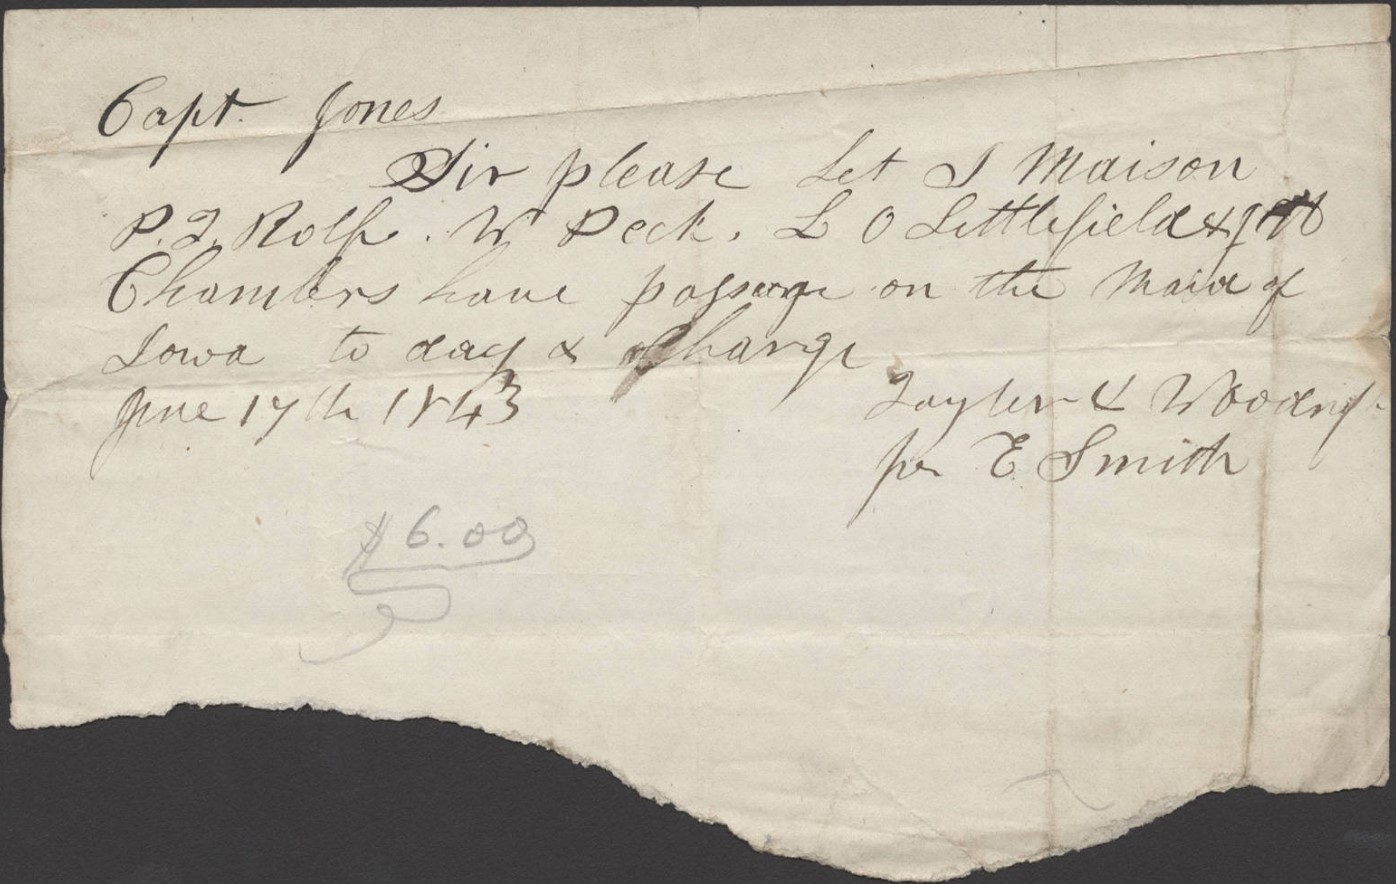 Capt. Jones
Sir please Let S Maison
P. T. Rolfe. W Peck. L O Littlefield &
Chambers have passage on the Maid of
Iowa to day & Charge
June 17th 1843 Taylor & Woodruf
per E. Smith
$6.00